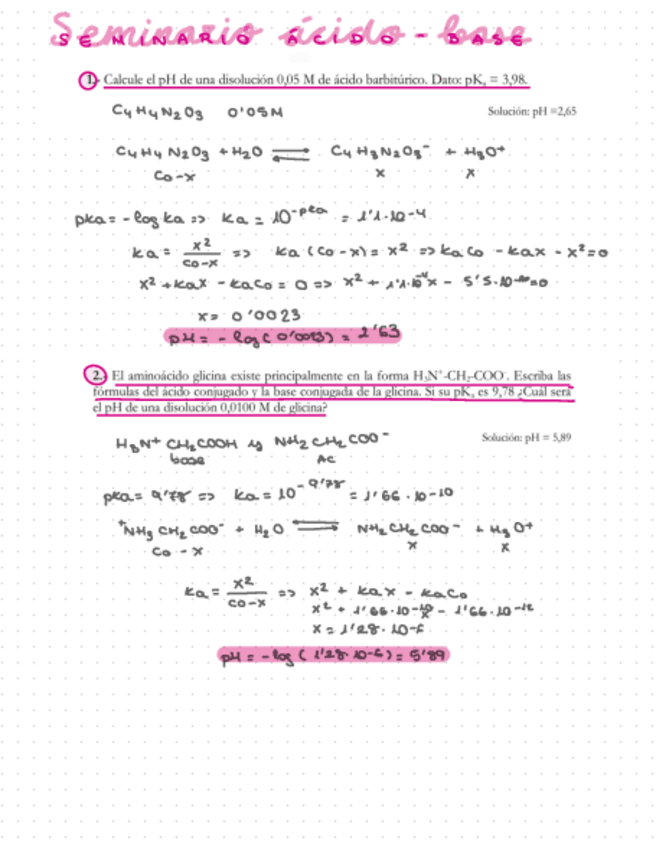 Seminario ácido - base
SEMINARIO ÁCIDO - BASE
1. Calcule el pH de una disolución 0,05 M de ácido barbitúrico. Dato: pKₐ = 3,98.
C4H4N2O3 0'05M
Solución: pH =2,65
C4H4N2O3 + H2O ⇌ C4H3N2O3⁻ + H3O⁺
Co-x x x
pKa = -log Ka => Ka = 10^-pKa = 1'1·10^-4
Ka = x²/(Co-x) => Ka (Co-x) = x² => KaCo - Kax - x² = 0
x² + Kax - KaCo = 0 => x² + 1'1·10^-4x - 5'5·10^-6=0
x = 0'0023
pH = - log (0'0023) = 2'63
2. El aminoácido glicina existe principalmente en la forma H₃N⁺-CH₂-COO⁻. Escriba las
fórmulas del ácido conjugado y la base conjugada de la glicina. Si su pKₐ es 9,78 ¿Cuál será
el pH de una disolución 0,0100 M de glicina?
H3N⁺ CH2COOH y NH2 CH2 COO⁻
Solución: pH = 5,89
base AC
pKa = 9'78 => Ka = 10^-9'78 = 1'66 · 10^-10
⁺NH3 CH2 COO⁻ + H2O ⇌ NH2CH2 COO⁻ + H3O⁺
Co - x x x
Ka = x²/(Co-x) => x² + Kax - KaCo
x² + 1'66·10^-10x - 1'66·10^-12
x = 1'28·10^-6
pH = -log (1'28·10^-6) = 5'89